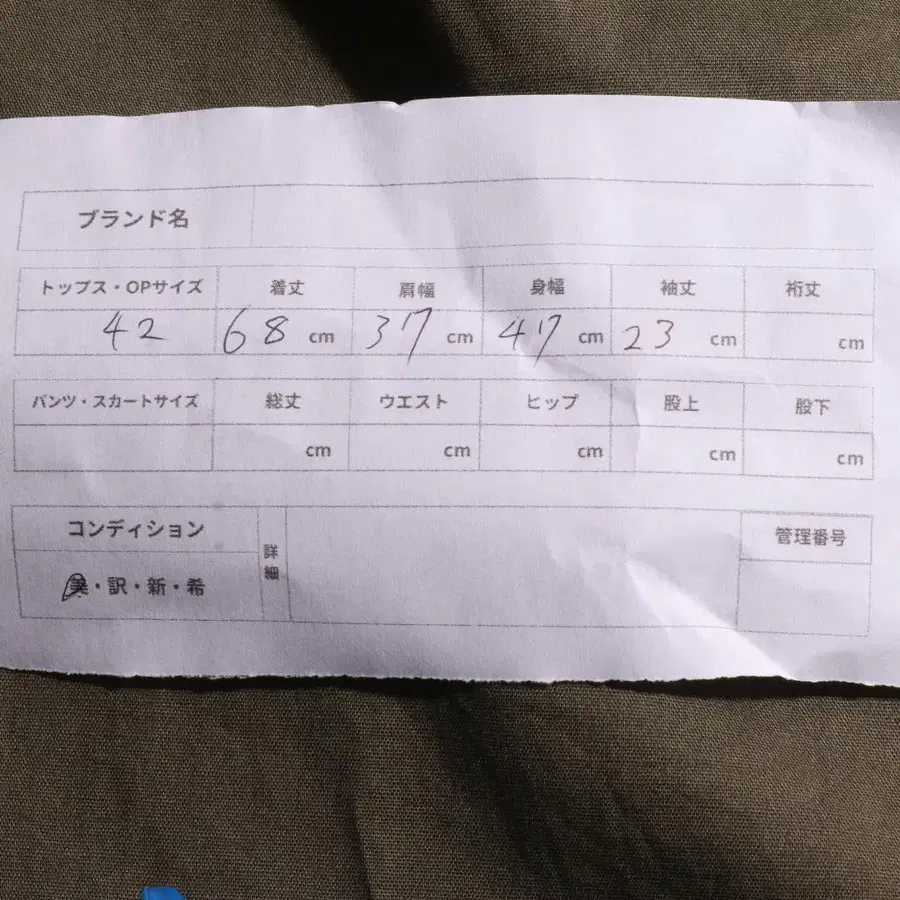 ブランド名
トップス・OPサイズ 着丈 肩幅 身幅 袖丈 裄丈
42 68 cm 37 cm 47 cm 23 cm cm
パンツ・スカートサイズ 総丈 ウエスト ヒップ 股上 股下
cm cm cm cm cm
コンディション 詳細 管理番号
美・訳・新・希